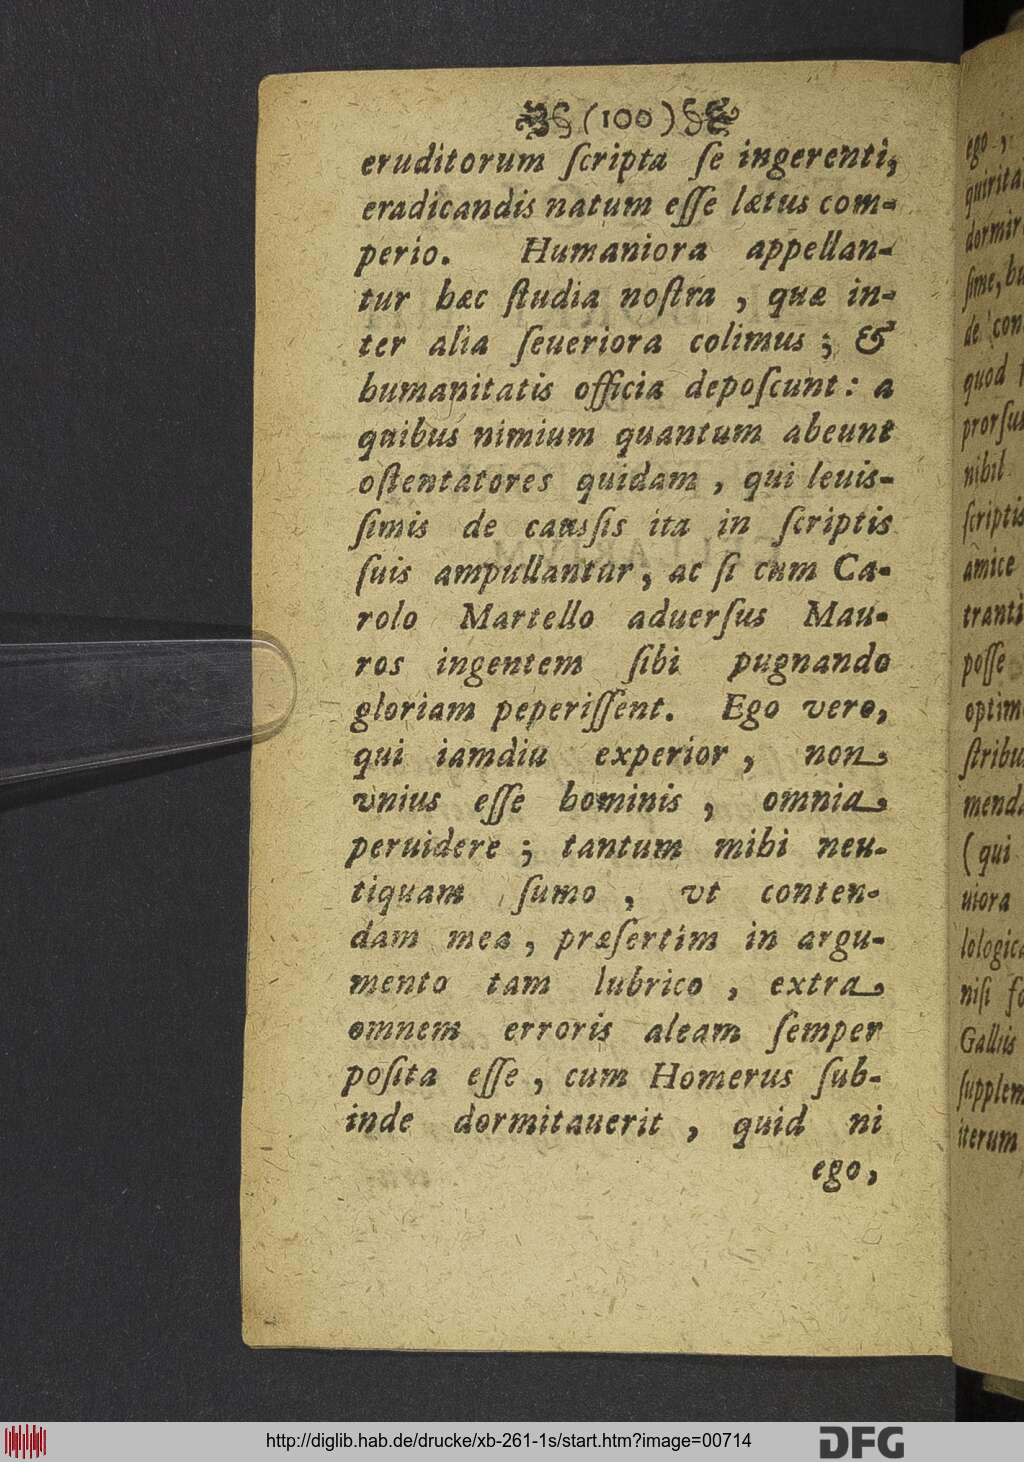 (100)
eruditorum ſcripta ſe ingerenti,
eradicandis natum eſſe lætus com-
perio. Humaniora appellan-
tur hæc ſtudia noſtra, quæ in-
ter alia ſeueriora colimus; &
humanitatis officia depoſcunt: a
quibus nimium quantum abeunt
oſtentatores quidam, qui leuis-
ſimis de causſis ita in ſcriptis
ſuis ampullantur, ac ſi cum Ca-
rolo Martello aduerſus Mau-
ros ingentem ſibi pugnando
gloriam peperiſſent. Ego vero,
qui iamdiu experior, non
vnius eſſe hominis, omnia
peruidere; tantum mihi neu-
tiquam ſumo, vt conten-
dam mea, præſertim in argu-
mento tam lubrico, extra
omnem erroris aleam ſemper
poſita eſſe, cum Homerus ſub-
inde dormitauerit, quid ni
ego,
ego,
quirita
dormir
ſime, bu
de con
quod p
prorſus
nihil
ſcriptis
amice
tranti
poſſe
optim
ſtribu
menda
(qui
uiora
lologica
niſi fo
Galliis
ſupplem
iterum
http://diglib.hab.de/drucke/xb-261-1s/start.htm?image=00714
DFG